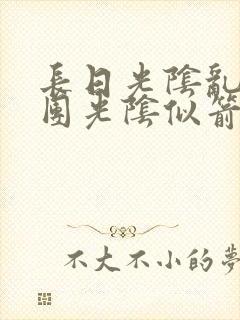 長日光陰亂
團光陰似箭
不大不小的夢